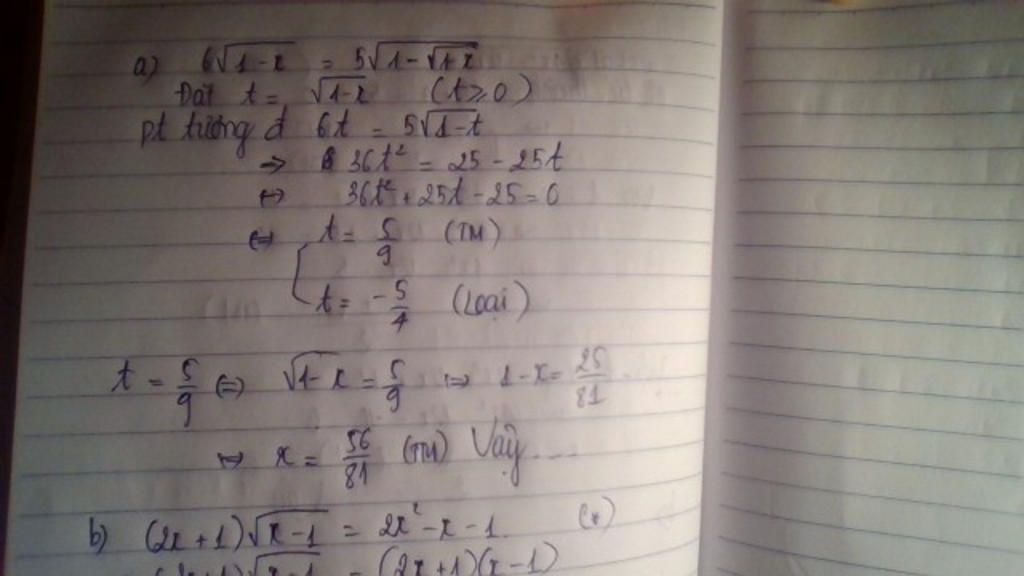 a) 6√(1-x) = 5√(1-√(1-x))
Đặt t = √(1-x) (t ≥ 0)
pt tương đ 6t = 5√(1-t)
⇒ 36t² = 25 - 25t
⇔ 36t² + 25t - 25 = 0
⇔ t = 5/9 (TM)
t = -5/4 (Loại)
t = 5/9 ⇔ √(1-x) = 5/9 ⇔ 1-x = 25/81
⇔ x = 56/81 (TM) Vậy ....
b) (2x+1)√(x-1) = 2x² - x - 1. (*)
= (2x+1)(x-1)